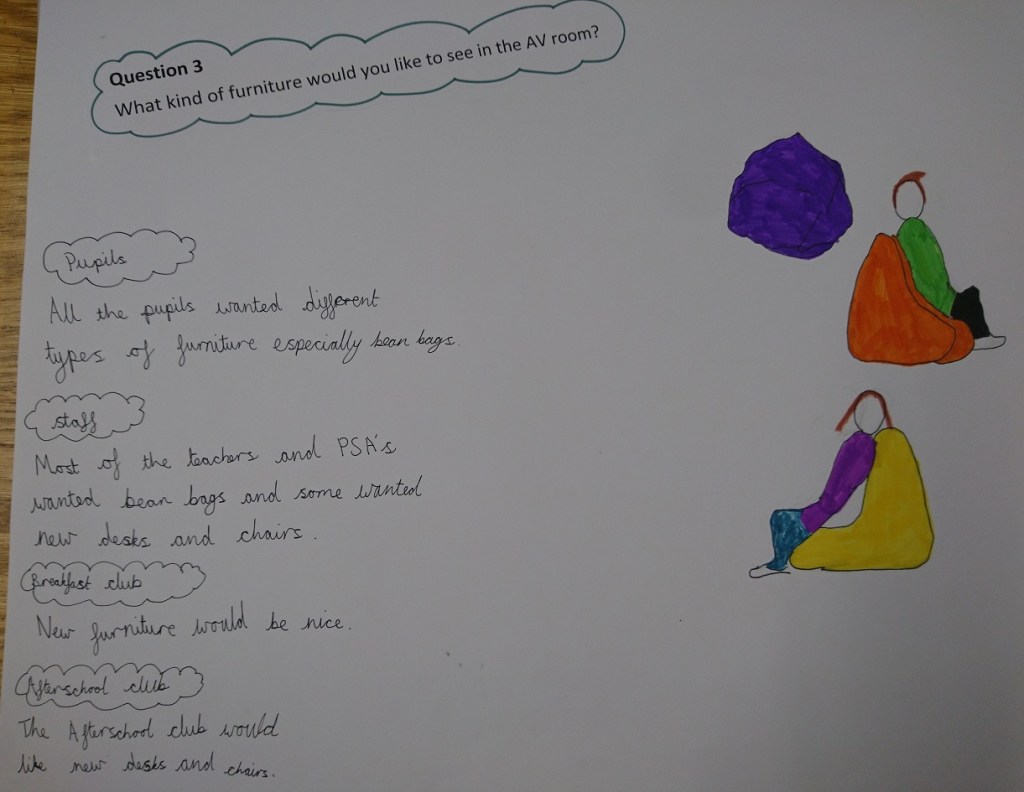 Question 3
What kind of furniture would you like to see in the AV room?
Pupils
All the pupils wanted different
types of furniture especially bean bags.
staff
Most of the teachers and PSA's
wanted bean bags and some wanted
new desks and chairs.
Breakfast club
New furniture would be nice.
Afterschool club
The Afterschool club would
like new desks and chairs.